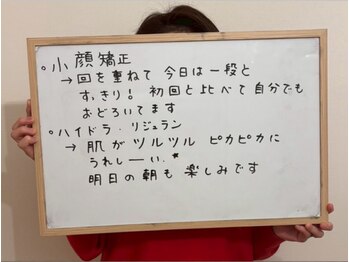 ○小顔矯正
→回を重ねて 今日は一段と
すっきり! 初回と比べて自分でも
おどろいてます
○ハイドラ・リジュラン
→肌がツルツル ピカピカに
うれしーい.★
明日の朝も楽しみです